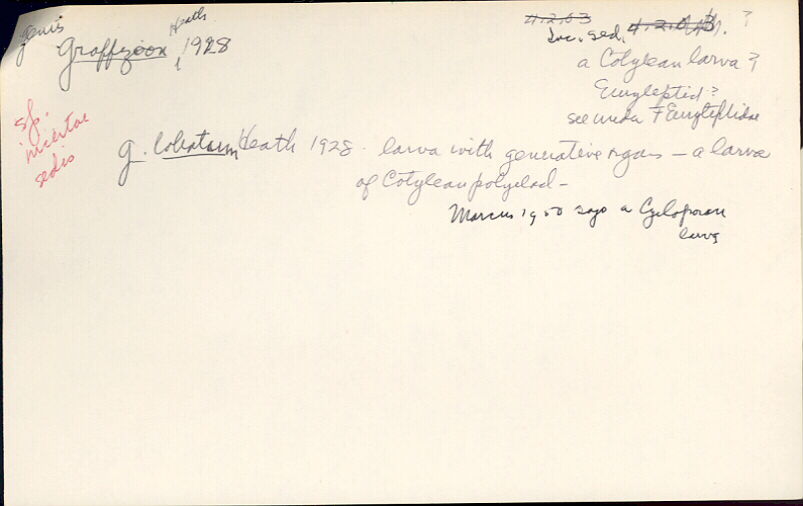 genus
Graffizoon Heath 1928
4.2.63 ?
Inc. sed.
a Cotylean larva ?
Euryleptid ?
see under F Euryleptidae
sp.
incertae
sedis
g. lobatum Heath 1928. larva with generative organs — a larva
of Cotylean polyclad —
Marcus 1950 says a Cycloporan
larva